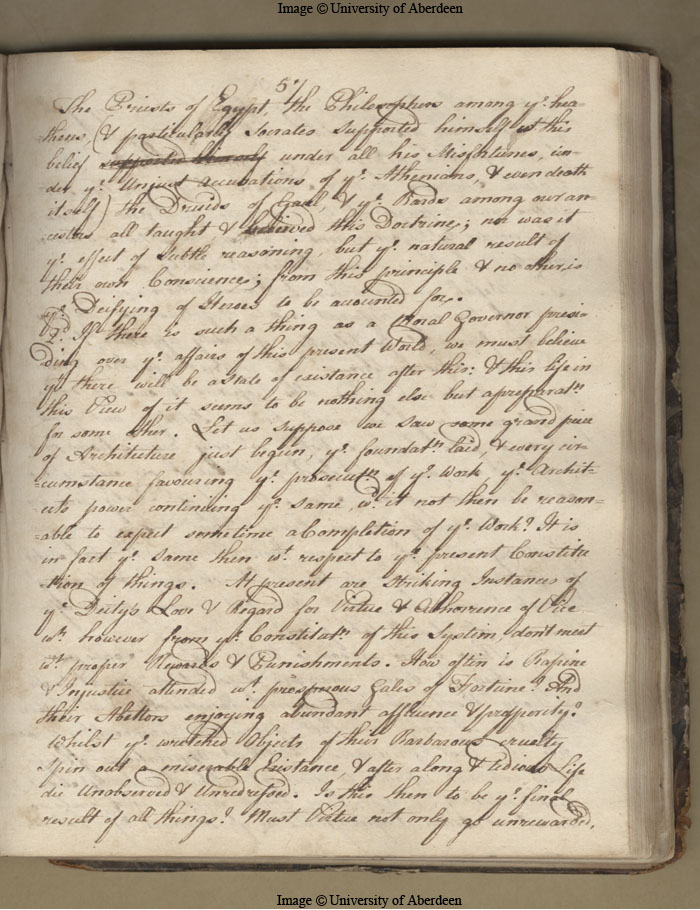 Image © University of Aberdeen
5
The Priests of Egypt, the Philosophers among ye. hea-
thens, (& particularly Socrates Supported himself wt. this
belief supported himself under all his Misfortunes, un-
der ye. Unjust accusations of ye. Athenians, & even death
itself) the Druids of Gaul, & ye. Bards among our an-
cestors all taught, & believed this Doctrine; nor was it
ye. effect of Subtle reasoning, but ye. natural result of
their own Conscience; from this principle & no other, is
ye. Deifying of Heroes to be accounted for.
2d. If there is such a thing as a Moral Governor presi-
ding over ye. affairs of this present World, we must believe
yt. there will be a State of existance after this: & this life in
this View of it seems to be nothing else but a preparatn.
for some other. Let us suppose we saw some grand piece
of Architecture just begun, ye. foundatn. laid, & every cir-
cumstance favouring ye. prosecutn. of ye. Work ye. Archit-
ects power continuing ye. same, wd. it not then be reason-
able to expect sometime a Completion of ye. Work? It is
in fact ye. same then wt. respect to ye. present Constitu
tion of things. At present are Striking Instances of
ye. Deity's Love & Regard for Virtue & Abhorrence of Vice
wch. however from ye. Constitutn. of this System, don't meet
wt. proper Rewards & Punishments. How often is Rapine
& Injustice attended wt. prosperous Gales of Fortune? And
their Abettors enjoying abundant affluence & prosperity?
Whilst ye. wretched Objects of their Barbarous cruelty
Spin out a miserable Existance, & after a long & tedious Life
die Unobserved & Unredressed. Is this then to be ye. final
result of all things? Must Virtue not only go unrewarded,
Image © University of Aberdeen